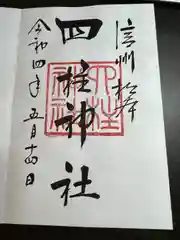 信州 松本
四柱神社
四柱神社
令和四年 五月十四日